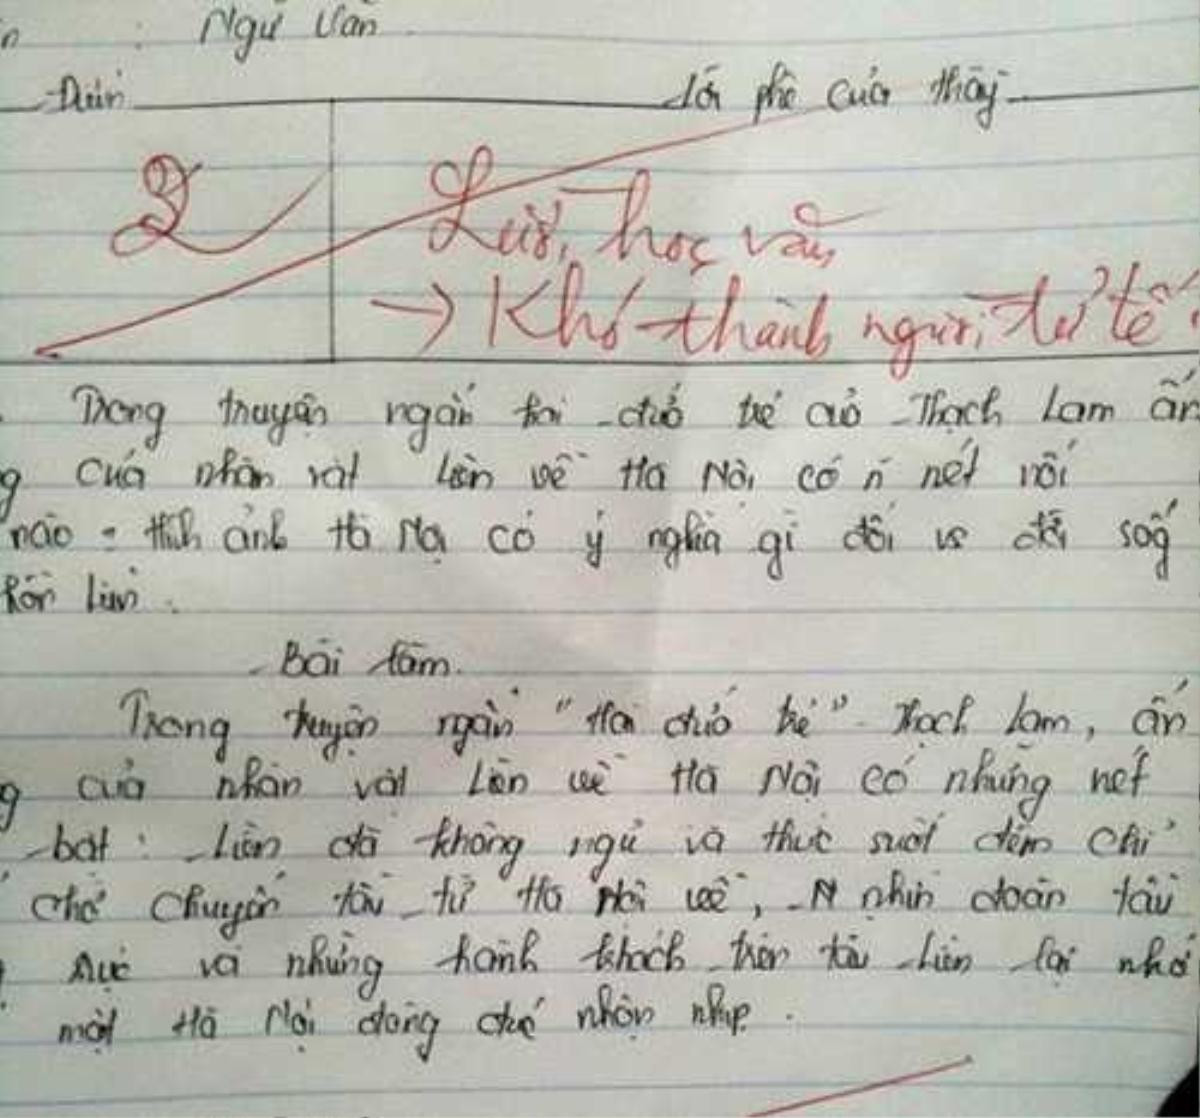 : Ngữ Văn
Điểm
Lời phê của thầy
2
Lười học văn
→ Khó thành người tử tế
Trong truyện ngắn hai đứa trẻ của Thạch Lam ấn
g của nhân vật Liên về Hà Nội có n nét nổi
nào : Hình ảnh Hà Nội có ý nghĩa gì đối vs đời sốg
hồn Liên.
Bài làm.
Trong truyện ngắn "Hai đứa trẻ" Thạch Lam, ấn
g của nhân vật Liên về Hà Nội có những nét
bật : Liên đã không ngủ và thức suốt đêm chỉ
chờ chuyến tàu từ Hà Nội về, nhìn đoàn tàu
rực và những hành khách trên tàu Liên lại nhớ
một Hà Nội đông đúc nhộn nhịp.